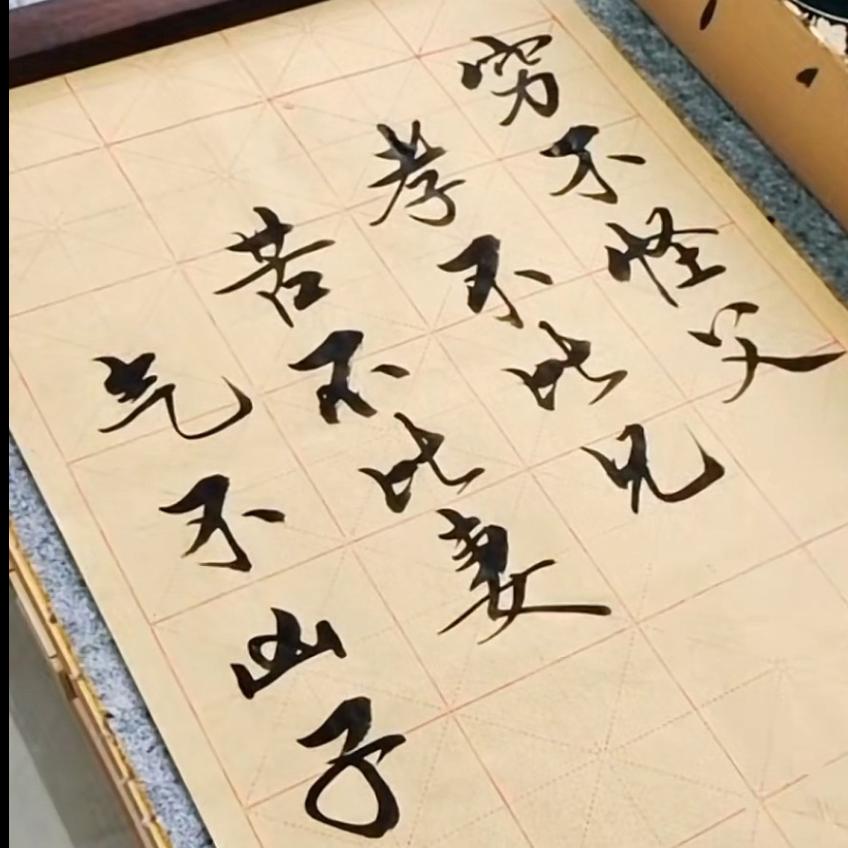 穷不怪父
孝不比兄
苦不比妻
气不凶子